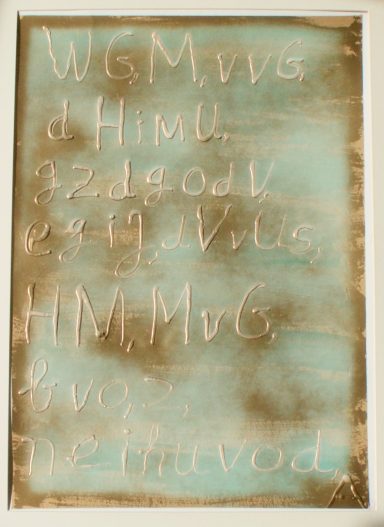 WG,M,vvG,
d HiMU,
gzdgodV,
egij,dVvUs,
HM,MvG,
bvo,2,
neihuvod,